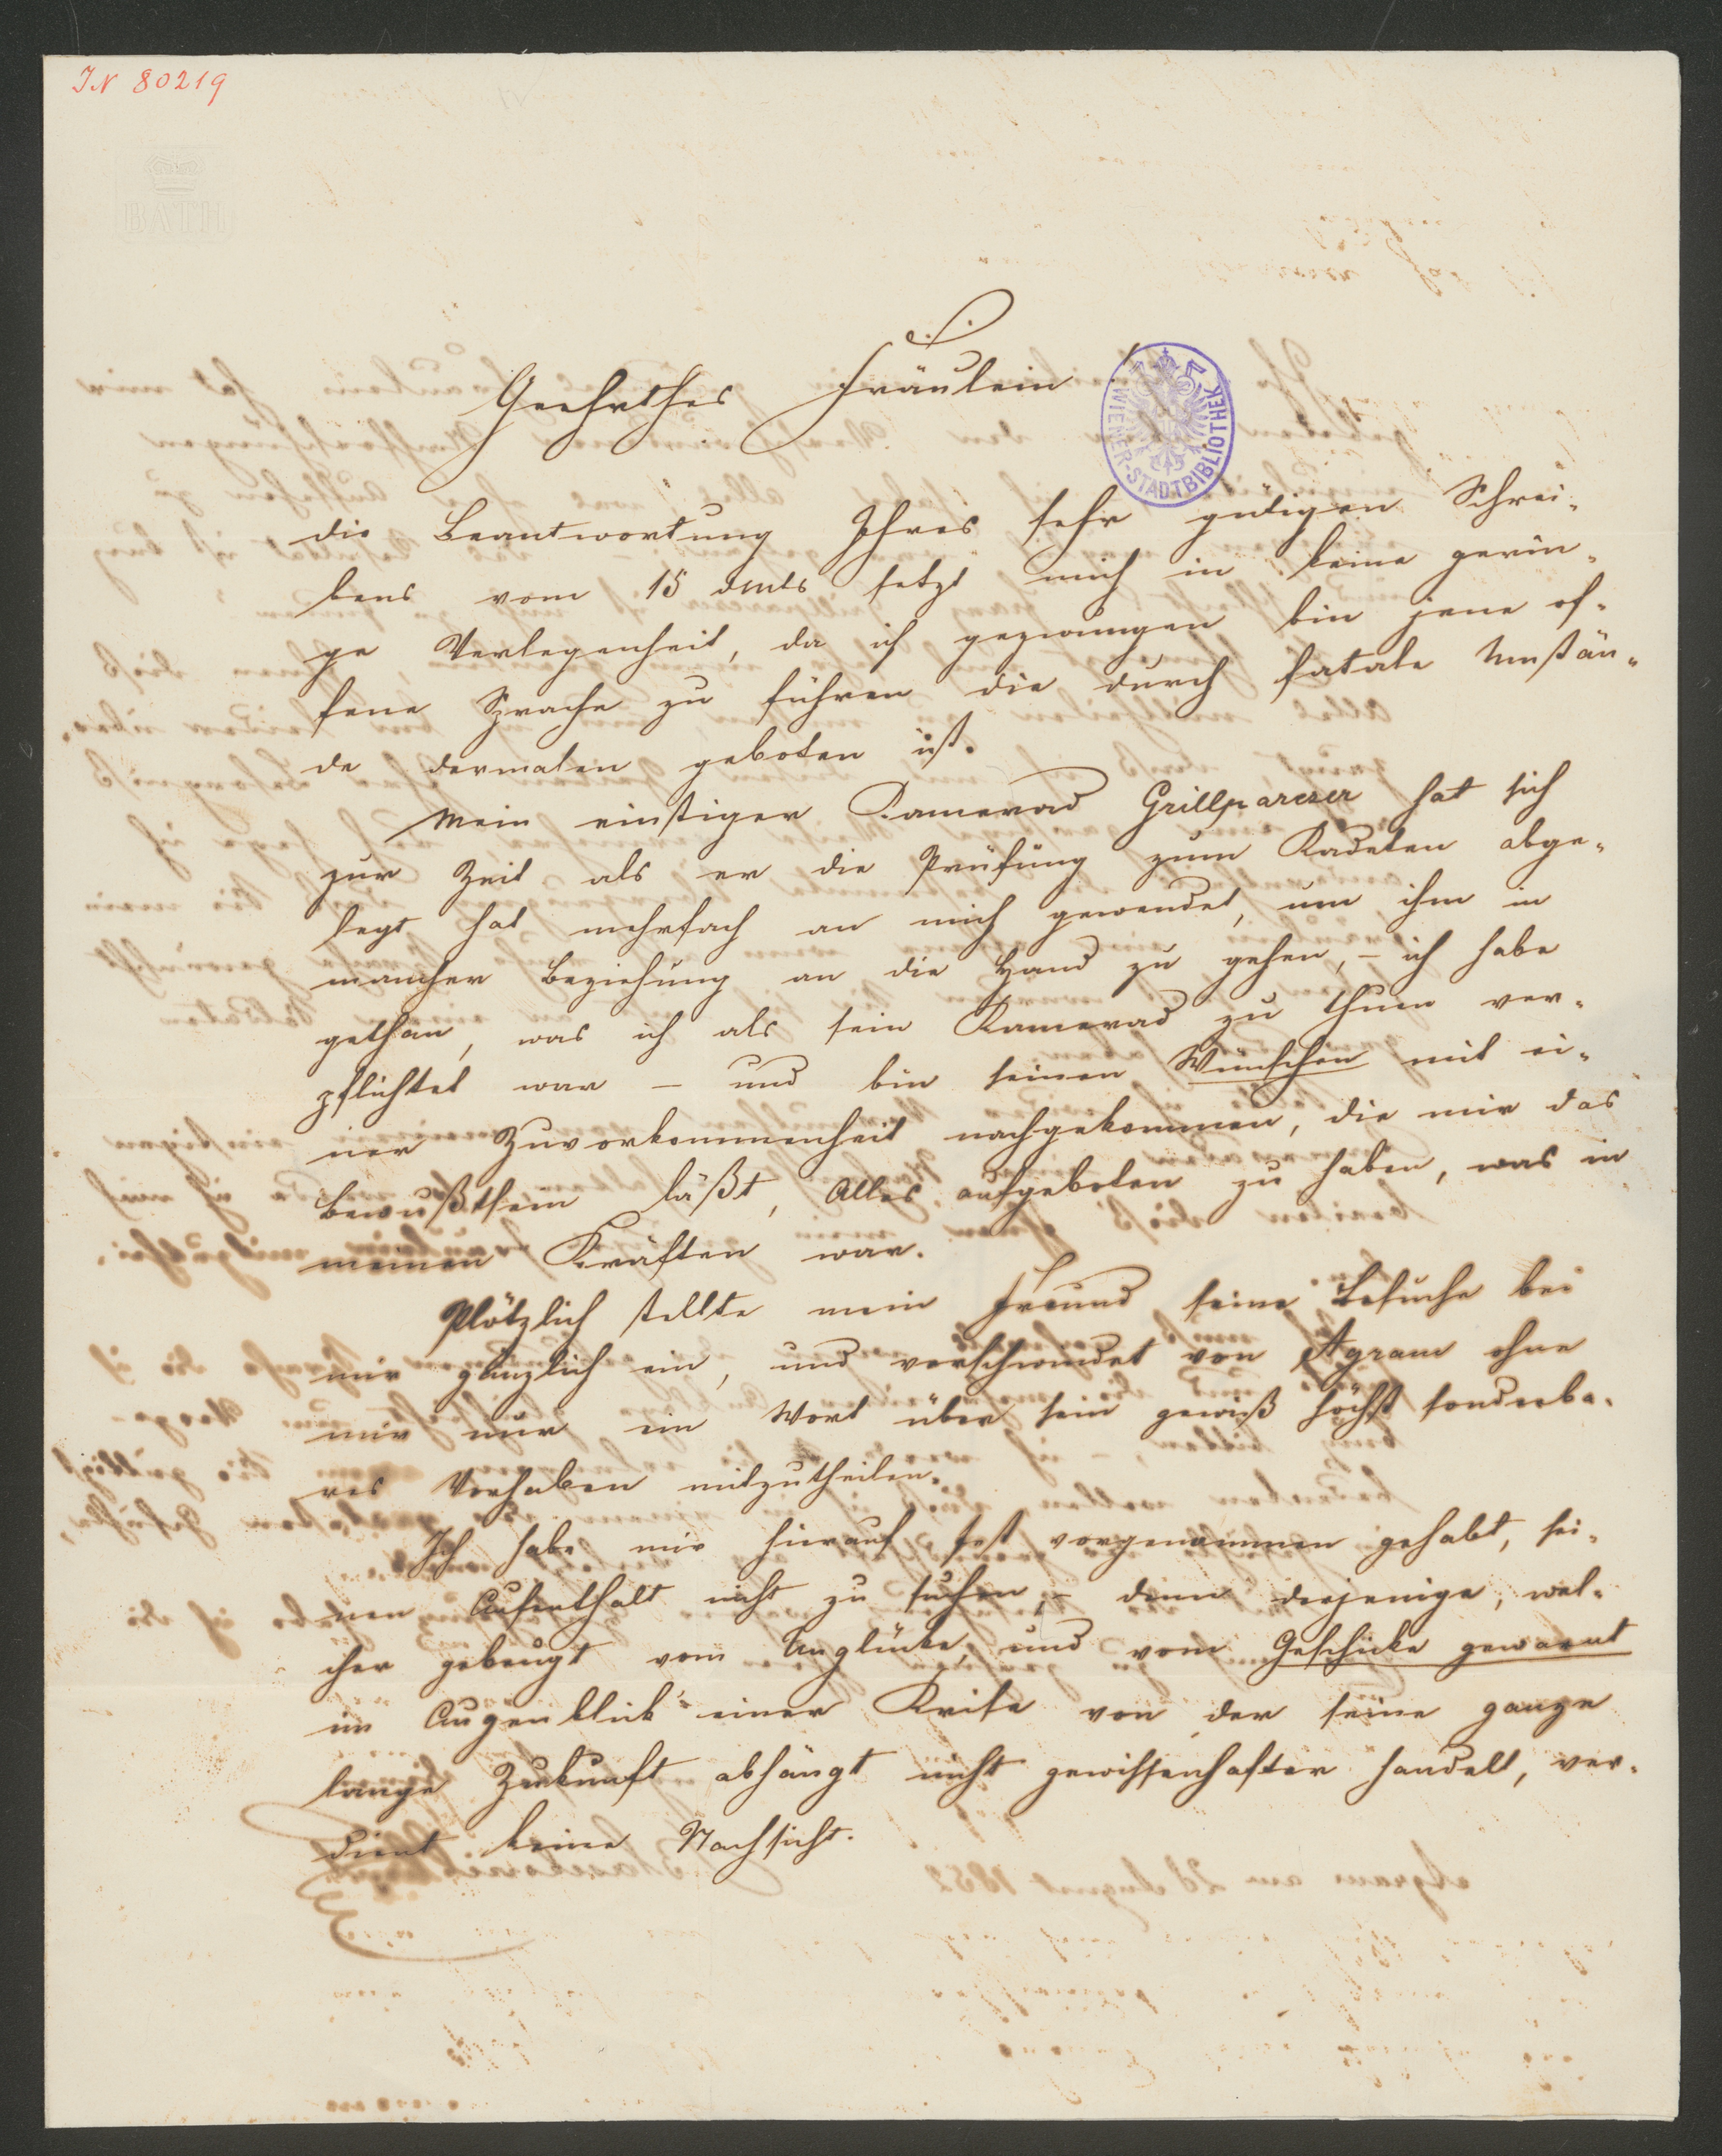 IN 80219
BATH
Geehrthes Fräulein!
WIENER-STADTBIBLIOTHEK
die Beantwortung Ihres sehr gütigen Schrei-
bens vom 15 dmts setzt mich in keine gerin-
ge Verlegenheit, da ich gezwungen bin jene of-
fene Sprache zu führen die durch fatale Umstän-
de dermalen geboten ist.
Mein einstiger Kamerad Grillparzer hat sich
zur Zeit als er die Prüfung zum Kadeten abge-
legt hat mehrfach an mich gewendet, um ihm in
mancher Beziehung an die Hand zu gehen, – ich habe
gethan, was ich als sein Kamerad zu thun ver-
pflichtet war – und bin seinen Wünschen mit ei-
ner Zuvorkommenheit nachgekommen, die mir das
Bewußtsein läßt, Alles aufgeboten zu haben, was in
meinen Kräften war.
Plötzlich stellte mein Freund seine Besuche bei
mir gänzlich ein, und verschwindet von Agram ohne
mir nur ein Wort über sein gewiß höchst sonderba-
res Vorhaben mitzutheilen.
Ich habe mir hierauf fest vorgenommen gehabt, sei-
nen Aufenthalt nicht zu suchen, – denn derjenige, wel-
cher gebeugt vom Unglücke, und vom Geschicke gewarnt
im Augenblick einer Krise von der seine ganze
lange Zukunft abhängt nicht gewissenhafter handelt, ver-
dient keine Nachsicht.